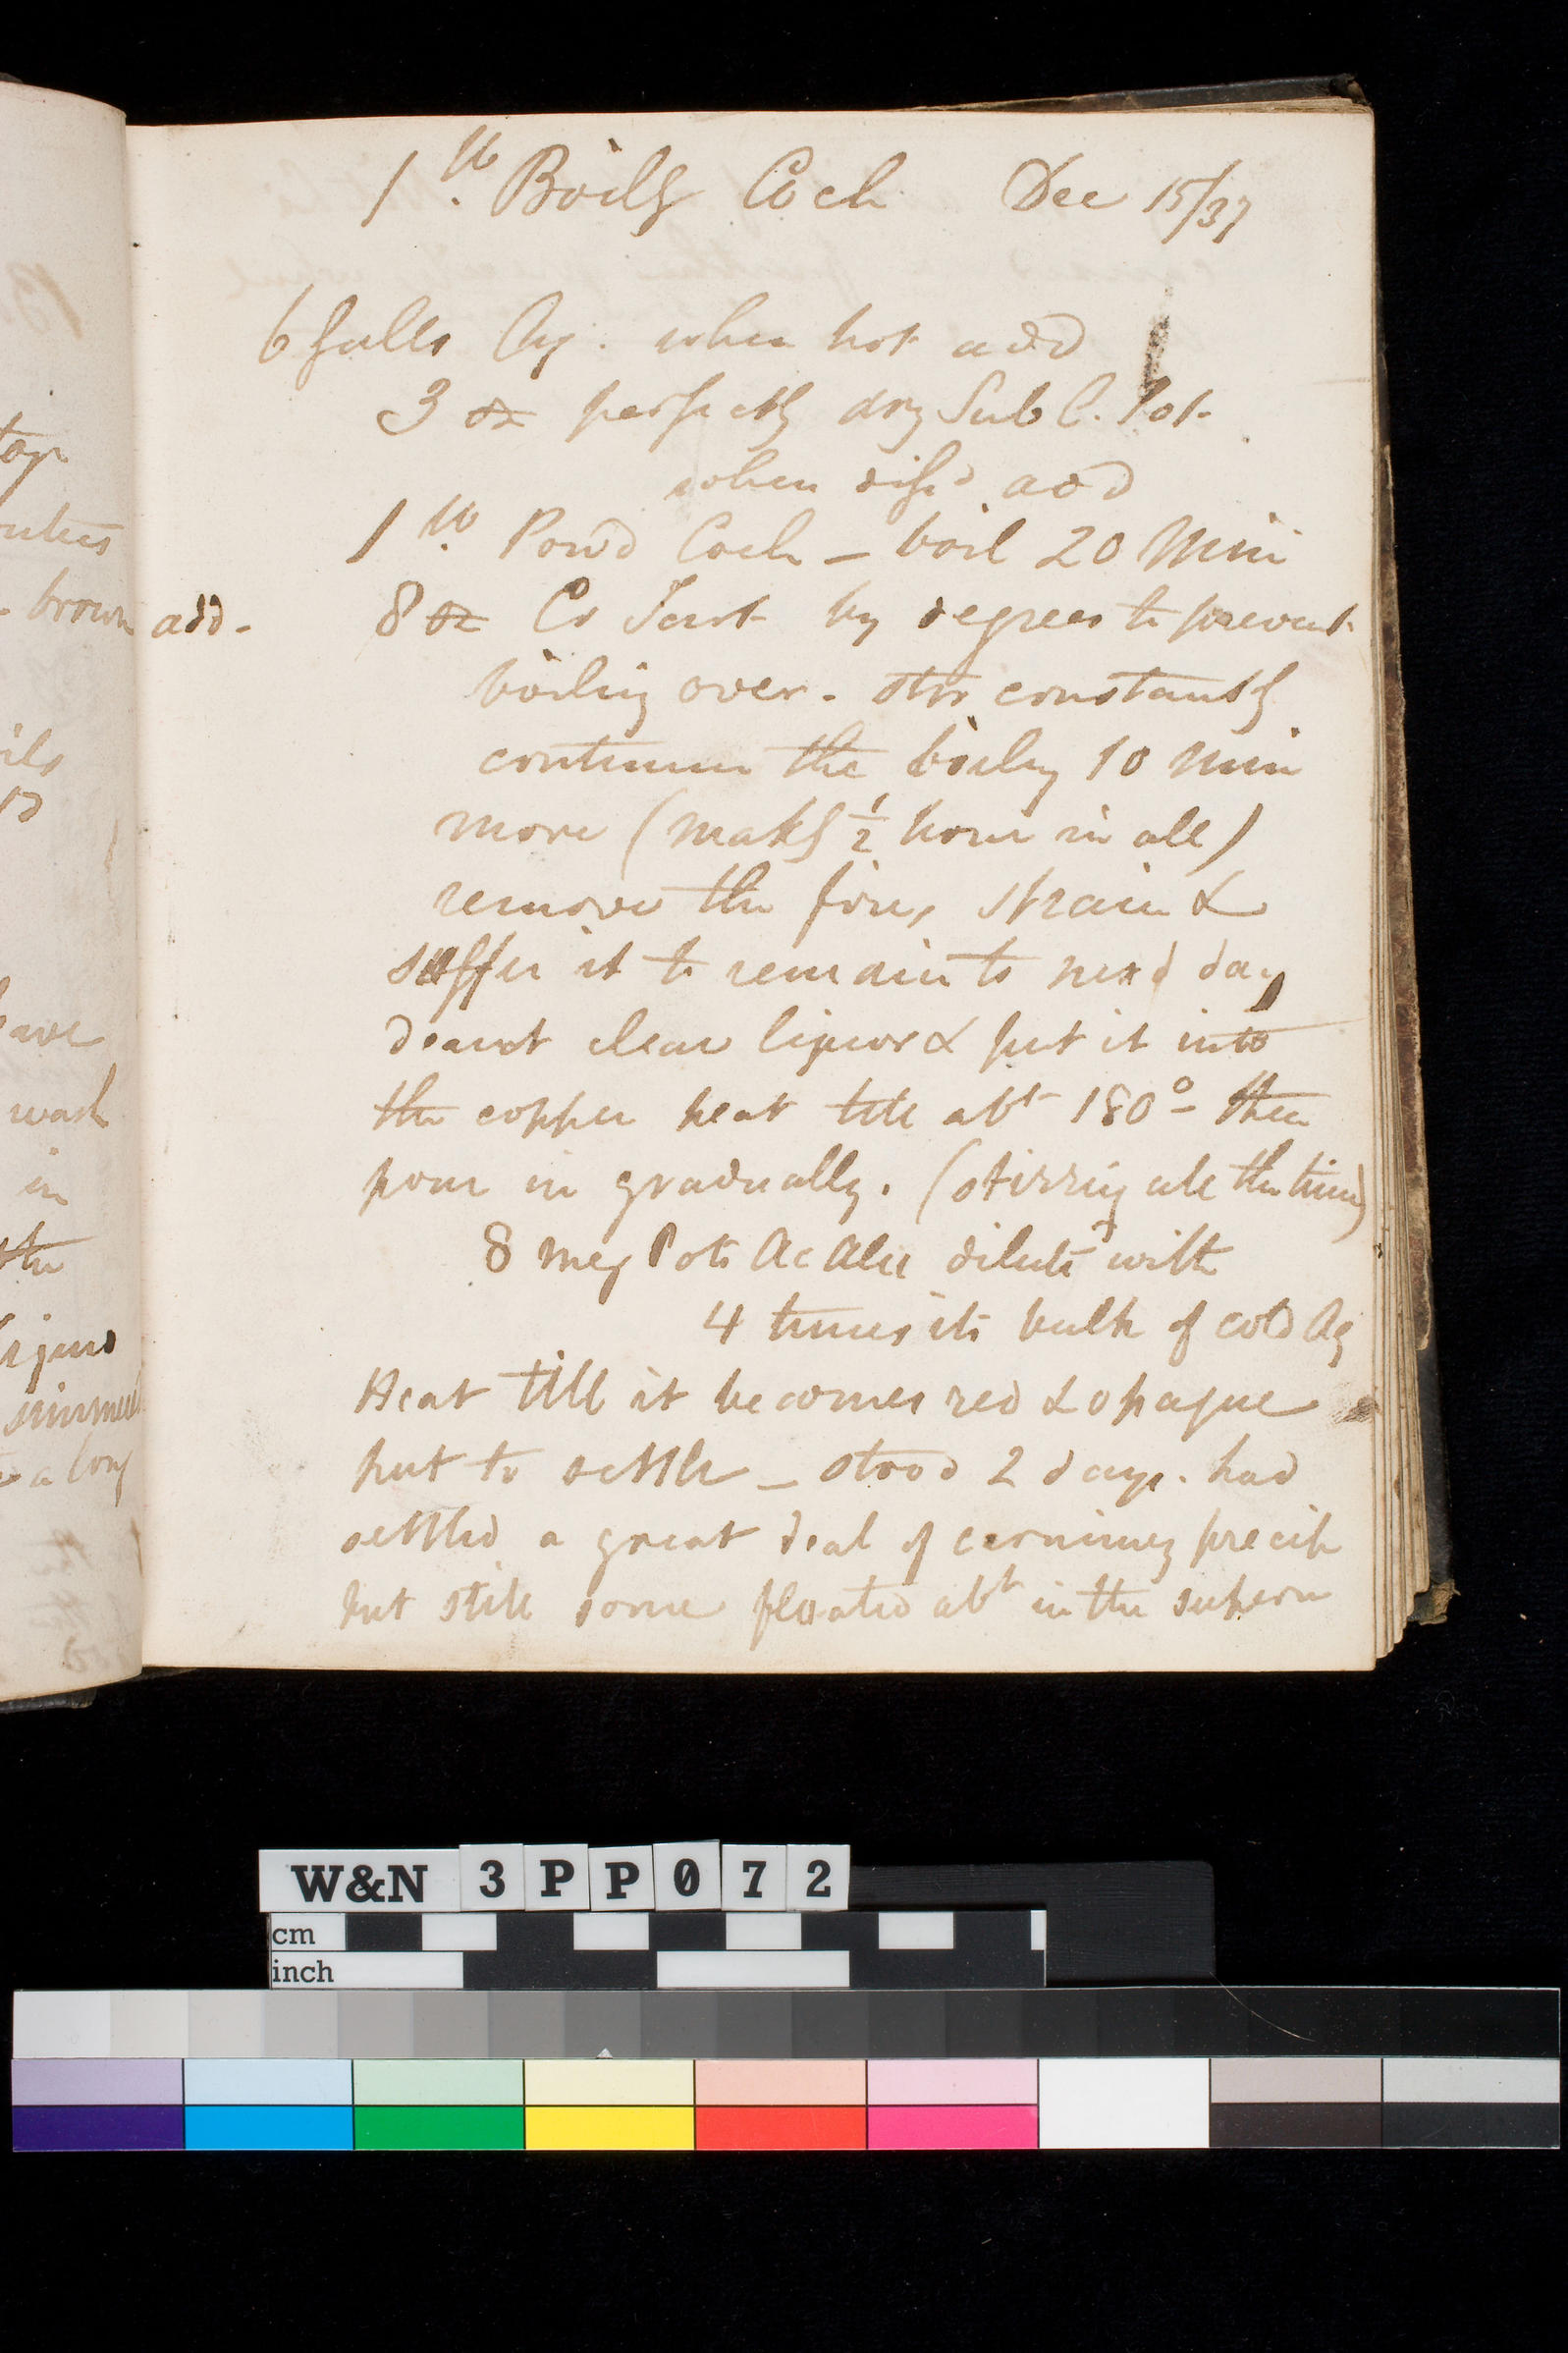 1 lb. Boilg Coch Dec 15/37
6 galls Aq. when hot add
3 oz perfectly dry Sub C. Pot.
when diss'd add
1 lb. Pow'd Coch — boil 20 Min
add. 8 oz Cr Tart by degrees to prevent
boiling over. stir constantly
continue the boilg 10 Min
more (makg ½ hour in all)
remove the fire, strain &
suffer it to remain to next day
decant clear liquor & put it into
the copper heat till abt 180° – then
pour in gradually. (stirring all the time)
8 Pots Ac Alu dilute'd with
4 times its bulk of cold Aq
Heat till it becomes red & opaque
put to settle — stood 2 days. had
settled a great deal of precip
but still some floated abt in the supern
top
brown
ils
wash
in
the
a long
W&N 3PP072
cm
inch